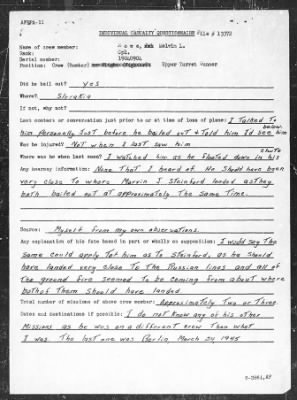 AFPPA-11
INDIVIDUAL CASUALTY QUESTIONNAIRE File # 13372
Name of crew member: Melvin L.
Rank: Cpl.
Serial number: 19040904
Position: Crew (Bomber) Upper Turret Gunner
Did he bail out? yes
Where? Slovakia
If not, why not?
Last contact or conversation just prior to or at time of loss of plane: I Talked To
him personally, Just before he bailed out & Told him I'd see him
below.
Was he injured? Not when I last saw him
Where was he when last seen? I watched him as he floated down in his
chute
Any hearsay information: None That I heard of. He Should have been
very close to where Marvin J Steinford landed as they
both bailed out at approximately The same Time.
Source: Myself from my own observations.
Any explanation of his fate based in part or wholly on supposition: I would say The
same could apply to him as to Steinford, as he should
have landed very close To the Russian lines and all of
The ground fire seemed to be coming from about where
both of Them should have landed.
Total number of missions of above crew member: Approximately Two or Three.
Dates and destinations if possible: I do not know any of his other
Missions as he was on a different crew Than what
I was. The last one was Berlin March 24 1945